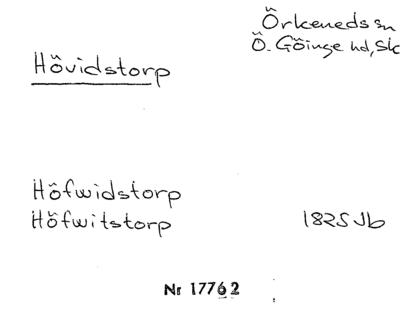 Örkeneds sn
Ö. Göinge hd, Sk
Hövidstorp
Höfwidstorp
Höfwitstorp 1825 Jb
Nr 17762